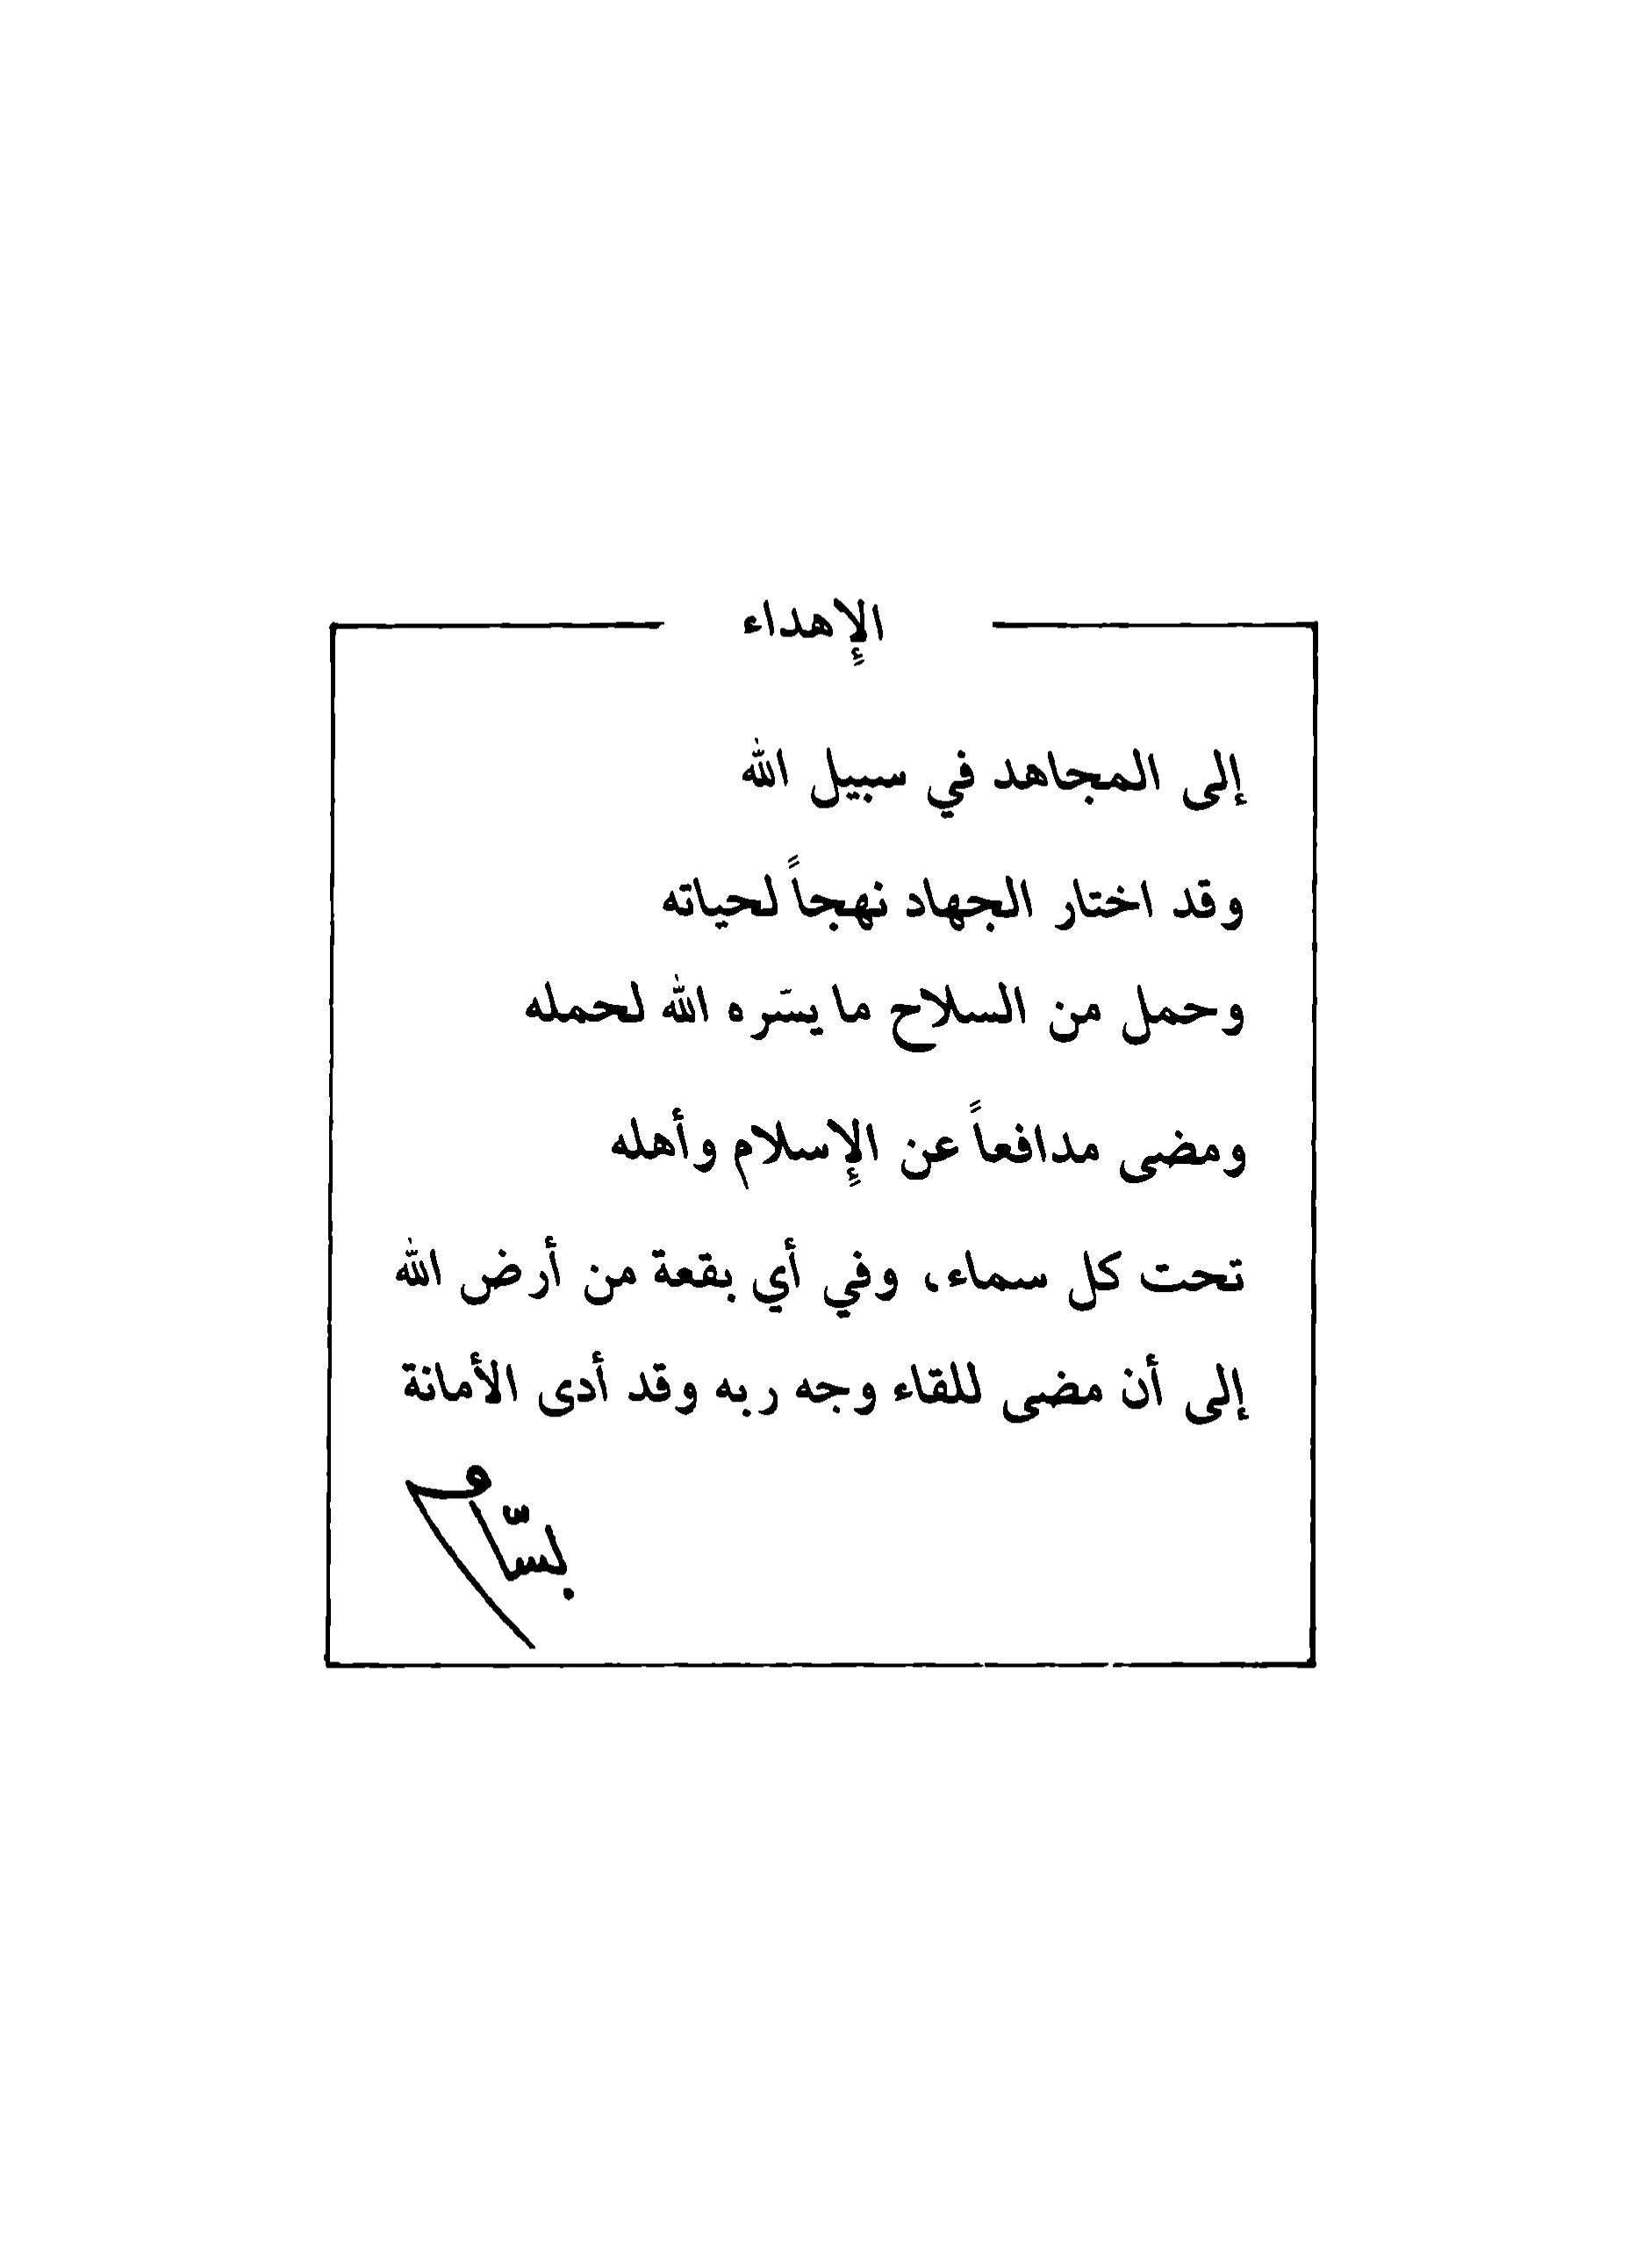 الإهداء
إلى المجاهد في سبيل الله
وقد اختار الجهاد نهجاً لحياته
وحمل من السلاح ما يسّره الله لحمله
ومضى مدافعاً عن الإسلام وأهله
تحت كل سماء، وفي أي بقعة من أرض الله
إلى أن مضى للقاء وجه ربه وقد أدى الأمانة
بسّام